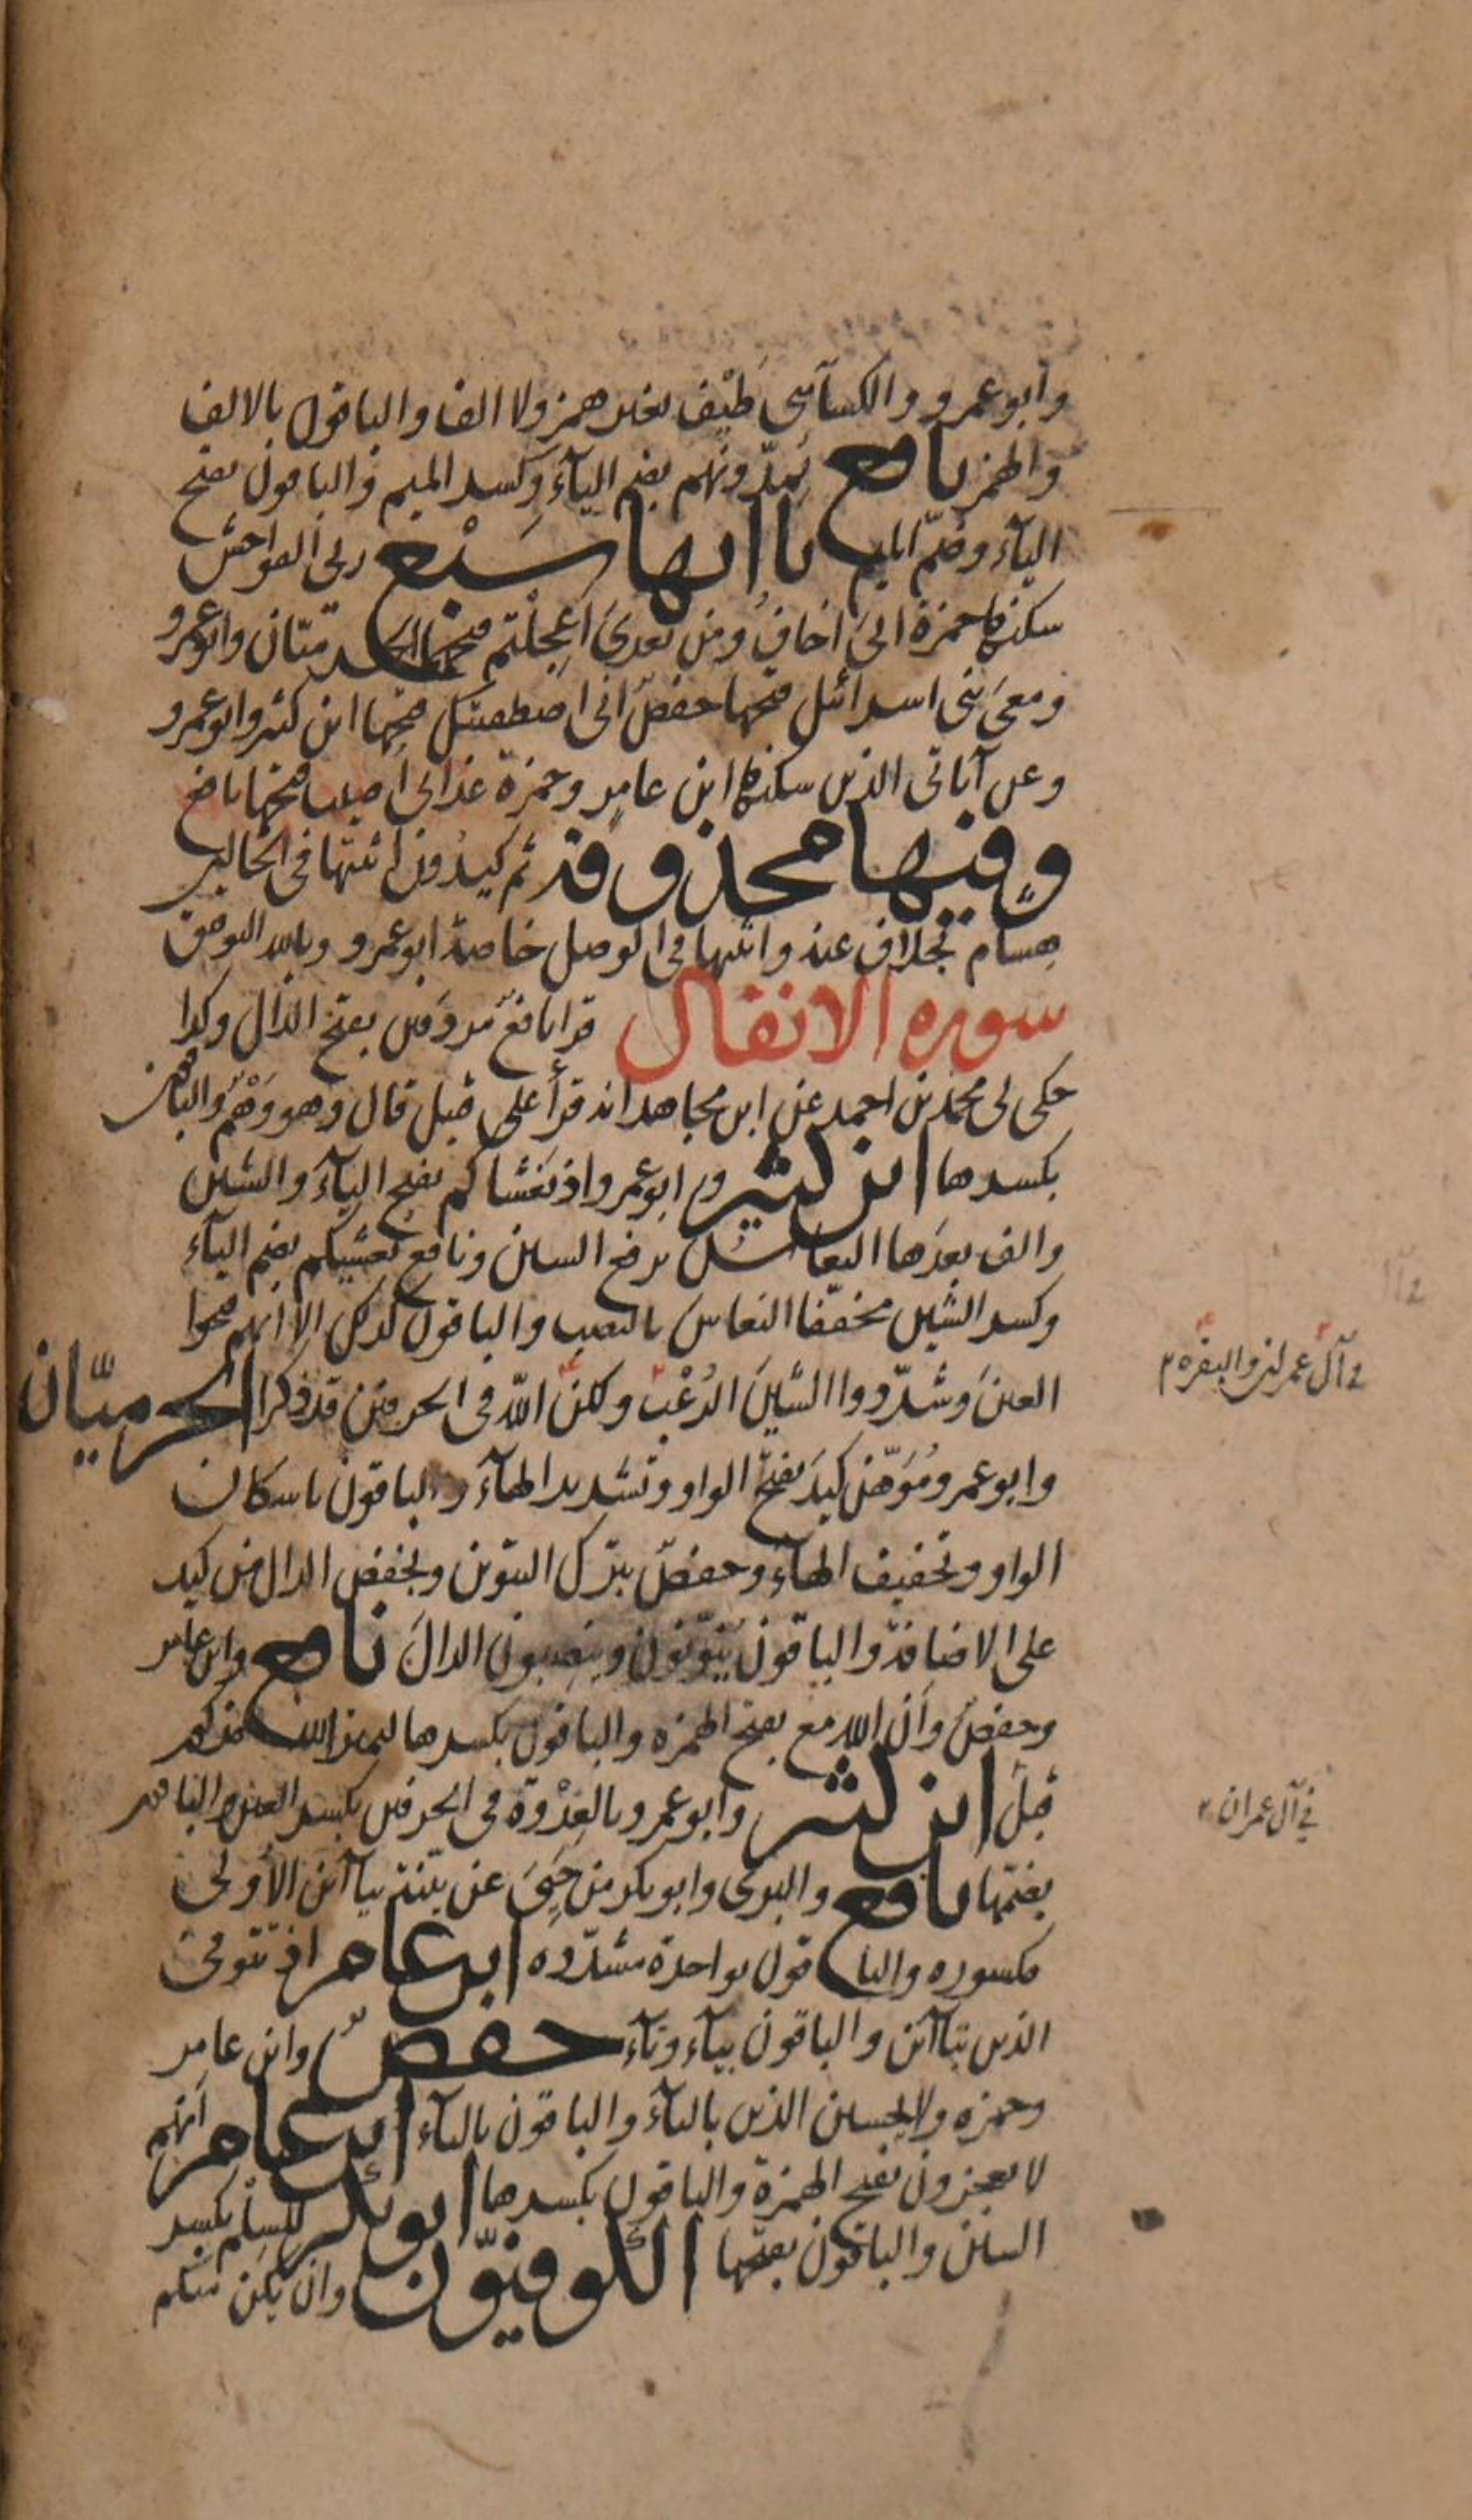 وابو عمرو والكسآئى طَيْف بغير همز ولا الف والباقون بالالف
والهمز نافع يُمِدّونهم بضم اليآء وكسر الميم والباقون بفتح
اليآء وضمّ الميم ياآتها سَبْع ربى الفواحش
سكنها حمزة انى اخاف ومن بعدىَ اَعجلتم فتحهما الحرميّان وابو عمرو
ومعىَ بنى اسرائيل فتحها حفصٌ انى اصطفيتك فتحها ابن كثير وابو عمرو
وعن آياتى الذين سكنها ابن عامرٍ وحمزة عذابى اصيب فتحها نافع
وفيها محذوفة ثم كيدون اثبتها فى الحالين
هشام بخلاف عنه واثبتها فى الوصل خاصة ابو عمرو وبالله التوفيق
سورة الانفال قرا نافعٌ مردَفين بفتح الدال وكذا
حكى لى محمد بن احمد عن ابن مجاهد انه قرأ على قنبل قال وهو وَهْمٌ والباقون
بكسرها ابن كثير وابو عمرو اذ يَغشاكم بفتح اليآء والشين
والف بعدها النعاسُ برفع السين ونافع يغشيكم بضم اليآء
وكسر الشين مخففا النعاسَ بالنصب والباقون كذلك الا انهم فتحوا
الغينَ وشدّدوا الشّينَ الرُعْب ولكنّ اللّه فى الحرفين قد ذكرا الحرميّان
وابو عمرو مُوَهّنٌ كيدَ بفتح الواو وتشديد الهآء والباقون باسكان
الواو وتخفيف الهآء وحفصٌ بترك التنوين وبخفض الدال من كيد
على الاضافة والباقون يُنَوّنون وينصبون الدالَ نافع وابن عامر
وحفصٌ وأنّ الله مع بفتح الهمزه والباقون بكسرها ليميز الله قد ذكر
قبلُ ابن كثير وابو عمرو بالعِدْوة فى الحرفين بكسر العين والباقون
بضمّها نافع والبزى وابو بكر من حَيِىَ عن بيّنة بيآئين الأولى
مكسوره والباقون بواحدة مشدّده ابن عامر اذ تتوفى
الذين بتآئين والباقون بيآء وتآء حفصٌ وابن عامر
وحمزه ولا يحسبن الذين باليآء والباقون بالتآء ابن عامر انهم
لا يعجزون بفتح الهمزة والباقون بكسرها ابو بكر للسِلم بكسر
السين والباقون بفتحها الكوفيّون وان يكن منكم
فى آل عمران والبقره ٢
فى آل عمران ٢